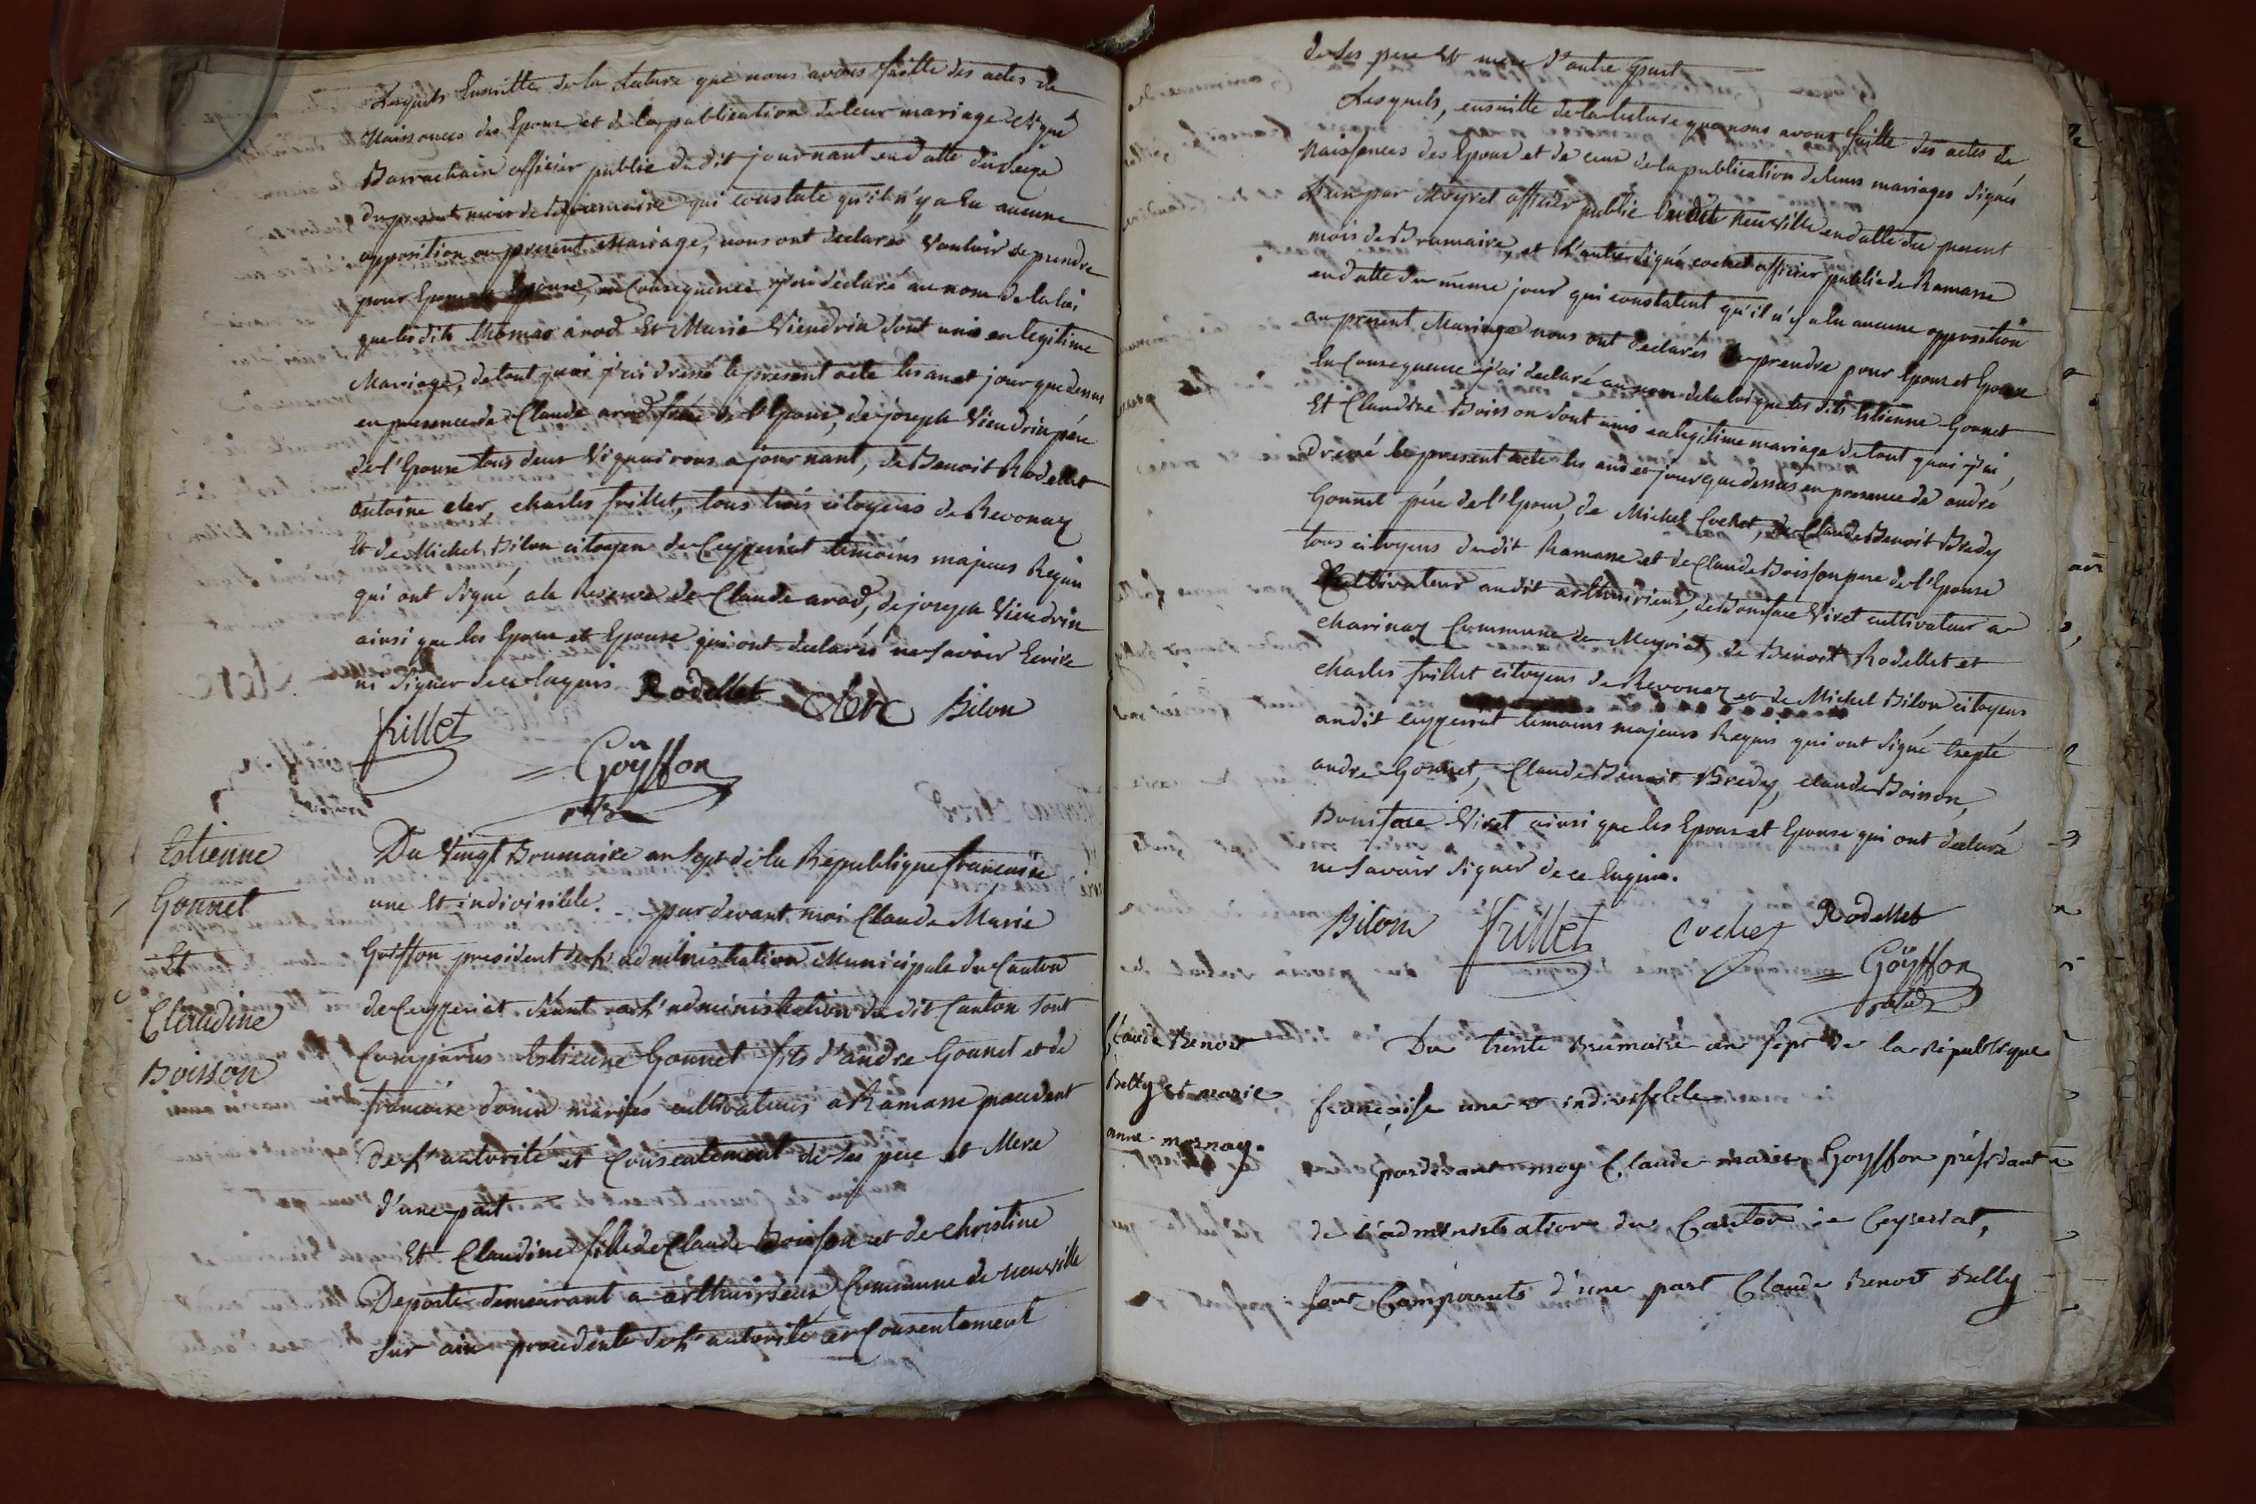 Lesquels Ensuitte de la Lecture que nous avons faitte des actes de
Naissances des Epoux et de la publication de leur mariage signé
Barrachain officier public du dit journant en datte du seize
du present mois de Brumaire qui constate qu'il n'y a Eu aucune
opposition au present Mariage, nous ont declarés Vouloir se prendre
pour Epoux Epouse, en Consequence j'ai déclaré au nom de la loi
que les dits Thomas arod Et Marie Viendrin sont unis en legitime
Mariage, de tout quoi j'ai dressé le present acte les an et jour que dessus
en presence de Claude arod frere de l'Epoux, de joseph Viendrin pére
de l'Epouse tous deux Vignairons a journant, de Benoit Rodellet
antoine cler, charles frillet, tous trois citoyens de Revonaz
Et de Michel Bilon citoyen de Ceyzeriat temoins majeurs Requis
qui ont signé, a la Reserve de Claude arod, de joseph Viendrin
ainsi que les Epoux et Epouse qui ont declarés ne savoir Ecrire
ni signer de ce Enquis
Rodellet Clerc Bilon
frillet
Goÿffon
Estienne
Gonnet
Et
Claudine
Boisson
Du Vingt Brumaire an Sept de la Republique francaise
une Et indivisible. par devant moi Claude Marie
Goiffon president de L'administration Municipale du Canton
de Ceyzeriat séant a L'administration du dit Canton sont
Comparus Estienne Gonnet fils d'andre Gonnet et de
francoise donin mariés cultivateurs a Ramasse procedant
de L'autorité et Consentement de ses pere et Mere
d'une part
Et Claudine fille de Claude Boisson et de christine
Deporte demeurant a arthuirieux Commune de neuville
sur ain procedente de L'autorité et Consentement
de ses pere Et mere d'autre part
Lesquels, ensuitte de la lecture que nous avons faitte des actes de
Naissances des Epoux et de ceux de la publication de leurs mariages signés
L'un par Moyret officier public dudit Neuville en datte du present
mois de Brumaire, et L'autre signé cochet officier public de Ramasse
en datte du même jour qui constatent qu'il n'y a Eu aucune opposition
au present Mariage nous ont declarés se prendre pour Epoux et Epouse
En Consequence j'ai declaré au nom de la loi que les dits Estienne Gonnet
Et Claudine Boisson sont unis en legitime mariage de tout quoi j'ai
Dressé le present acte les an et jour que dessus en presence de andré
Gonnet pére de l'Epoux, de Michel Cochet, de Claude Benoit Bredy
tous citoyens dudit Ramasse et de Claude Boisson pere de l'Epouse
Cultivateur audit arthuirieux, de Boniface Viret cultivateur a
charinaz Commune de Meyriat, de Benoit Rodellet et
charles frillet citoyens de Revonaz et de Michel Bilon citoyens
audit ceyzeriat temoins majeurs Requis qui ont signé Excepté
andré Gonnet, Claude Benoit Bredy, claude Boisson,
Boniface Viret ainsi que les Epoux et Epouse qui ont declaré
ne savoir signer de ce Enquis.
Bilon frillet cochet Rodellet
Goÿffon
Claude Benoit
Belly et marie
anne mornay.
Du trente Brumaire an sept de la République
française une et indivisible
pardevant moy Claude marie Goyffon présidant
de l'administration du Canton de Ceyseriat,
sont Comparuts d'une part Claude Benoit Belly